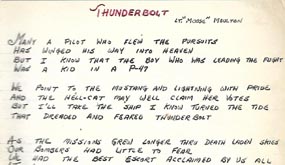 THUNDERBOLT
LT. "MOUSE" MOULTON
MANY A PILOT WHO FLEW THE PURSUITS
HAS WINGED HIS WAY INTO HEAVEN
BUT I KNOW THAT THE BOY WHO WAS LEADING THE FLIGHT
WAS A KID IN A P-47
WE POINT TO THE MUSTANG AND LIGHTNING WITH PRIDE
AND THE HELLCAT MAY WELL CLAIM HER VOTES
BUT I'LL TAKE THE SHIP I KNOW TURNED THE TIDE
THAT DREADED AND FEARED THUNDERBOLT
AS THE MISSIONS GREW LONGER THRU DEATH LADEN SKIES
OUR BOMBERS HAD LITTLE TO FEAR
WE HAD THE BEST ESCORT ACCLAIMED BY US ALL